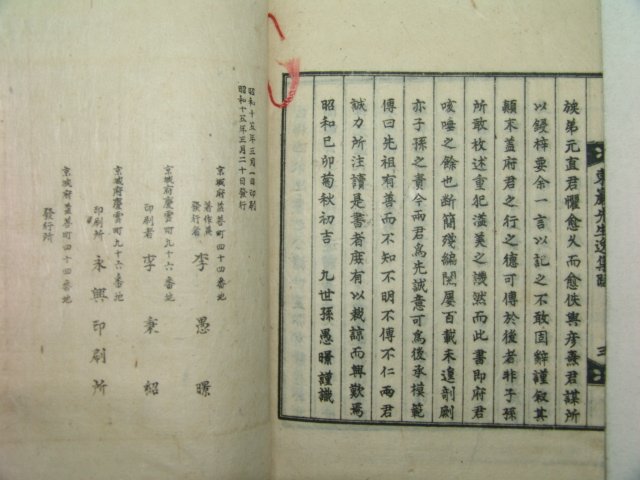 族弟元直君懼愈久而愈佚與彦熹君謀所
以鋟梓要余一言以記之不敢固辭謹叙其
顛末蓋府君之行之德可傳於後者非子孫
所敢枚述重犯溢美之譏然而此書即府君
咳唾之餘也斷簡殘編閱屢百載未遑剞劂
亦子孫之責今兩君爲先誠意可爲後承模範
傳曰先祖有善而不知不明不傳不仁兩君
誠力所注讀是書者庶有以裁諒而興歎焉
昭和己卯菊秋初吉 九世孫愚暻謹識
先生逸集
昭和十五年三月一日印刷
昭和十五年三月二十日發行
京城府蓋善町四十四番地
著作兼發行者 李愚暻
京城府慶雲町九十六番地
印刷者 李秉紹
京城府慶雲町九十六番地
印刷所 永興印刷所
京城府蓋善町四十四番地
發行所